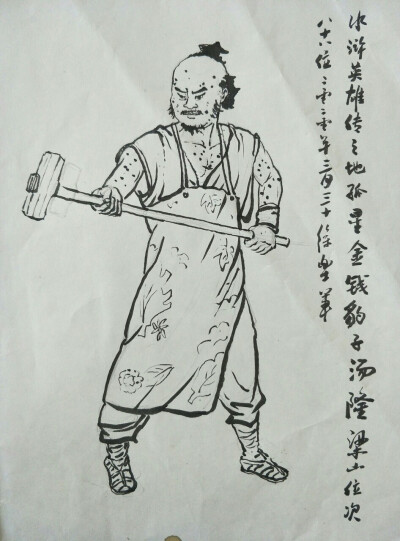 水浒英雄传之地孤星金钱豹子汤隆梁山位次
八十八位二零二零年三月三十徐